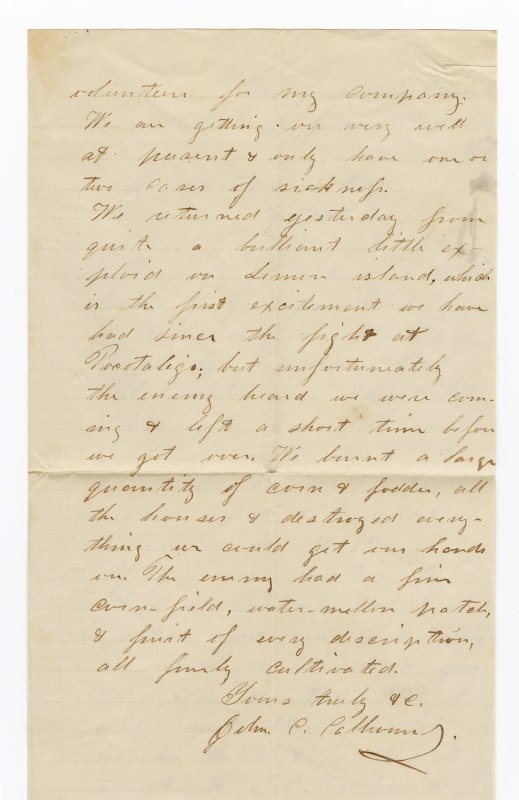 volunteers for my company.
We are getting on very well
at present & only have one or
two cases of sickness.
We returned yesterday from
quite a brilliant little ex-
ploid on Lemon island, which
is the first excitement we have
had since the fight at
Pocotaligo; but unfortunately
the enemy heard we were com-
ing & left a short time before
we got over. We burnt a large
quantity of corn & fodder, all
the houses & destroyed every-
thing we could get our hands
on. The enemy had a fine
corn-field, water-mellon patch,
& fruit of every description,
all finely cultivated.
Yours truly &c.
John C. Calhoun.